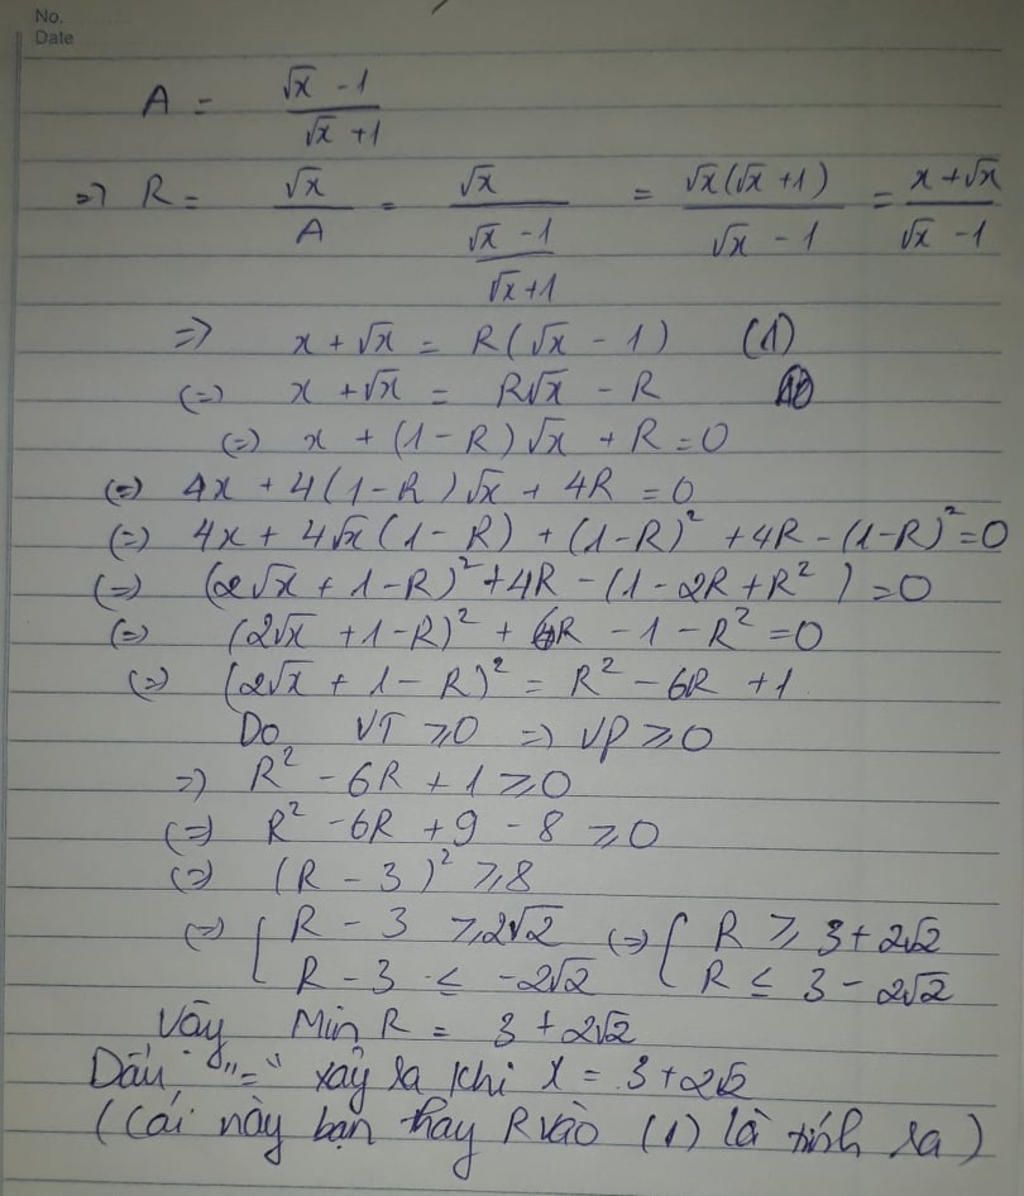 No.
Date
A = (√x - 1)/(√x + 1)
=> R = √x/A = √x/((√x - 1)/(√x + 1)) = √x(√x + 1)/(√x - 1) = (x + √x)/(√x - 1)
=> x + √x = R(√x - 1) (1)
(=) x + √x = R√x - R
(=) x + (1 - R)√x + R = 0
(=) 4x + 4(1 - R)√x + 4R = 0
(=) 4x + 4√x(1 - R) + (1 - R)² + 4R - (1 - R)² = 0
(=) (2√x + 1 - R)² + 4R - (1 - 2R + R²) = 0
(=) (2√x + 1 - R)² + 6R - 1 - R² = 0
(=) (2√x + 1 - R)² = R² - 6R + 1
Do VT ⩾ 0 => VP ⩾ 0
=> R² - 6R + 1 ⩾ 0
(=) R² - 6R + 9 - 8 ⩾ 0
(=) (R - 3)² ⩾ 8
(=) [ R - 3 ⩾ 2√2 (=) [ R ⩾ 3 + 2√2
R - 3 ≤ -2√2 R ≤ 3 - 2√2
Vậy Min R = 3 + 2√2
Dấu "=" xảy ra khi x = 3 + 2√2
(Cái này bạn thay R vào (1) là tính ra)